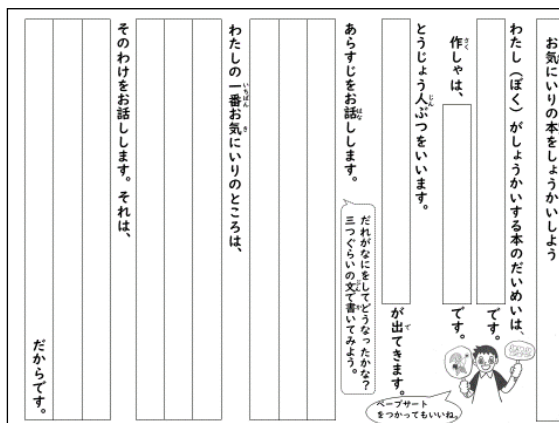 お気にいりの本をしょうかいしよう
わたし（ぼく）がしょうかいする本のだいめいは、
です。
作しゃは、
です。
とうじょう人ぶつをいいます。
が出てきます。
ペープサート
をつかってもいいね。
あらすじをお話しします。
だれがなにをしてどうなったかな？
三つぐらいの文で書いてみよう。
わたしの一番お気にいりのところは、
そのわけをお話しします。それは、
だからです。